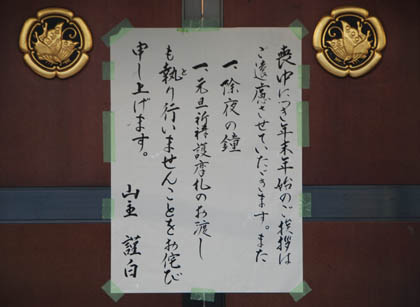 喪中につき年末年始のご挨拶は
ご遠慮させていただきます。また
一、除夜の鐘
一、元旦祈祷護摩札のお渡し
も執り行いませんことをお侘び
と
申し上げます。
山主 謹白